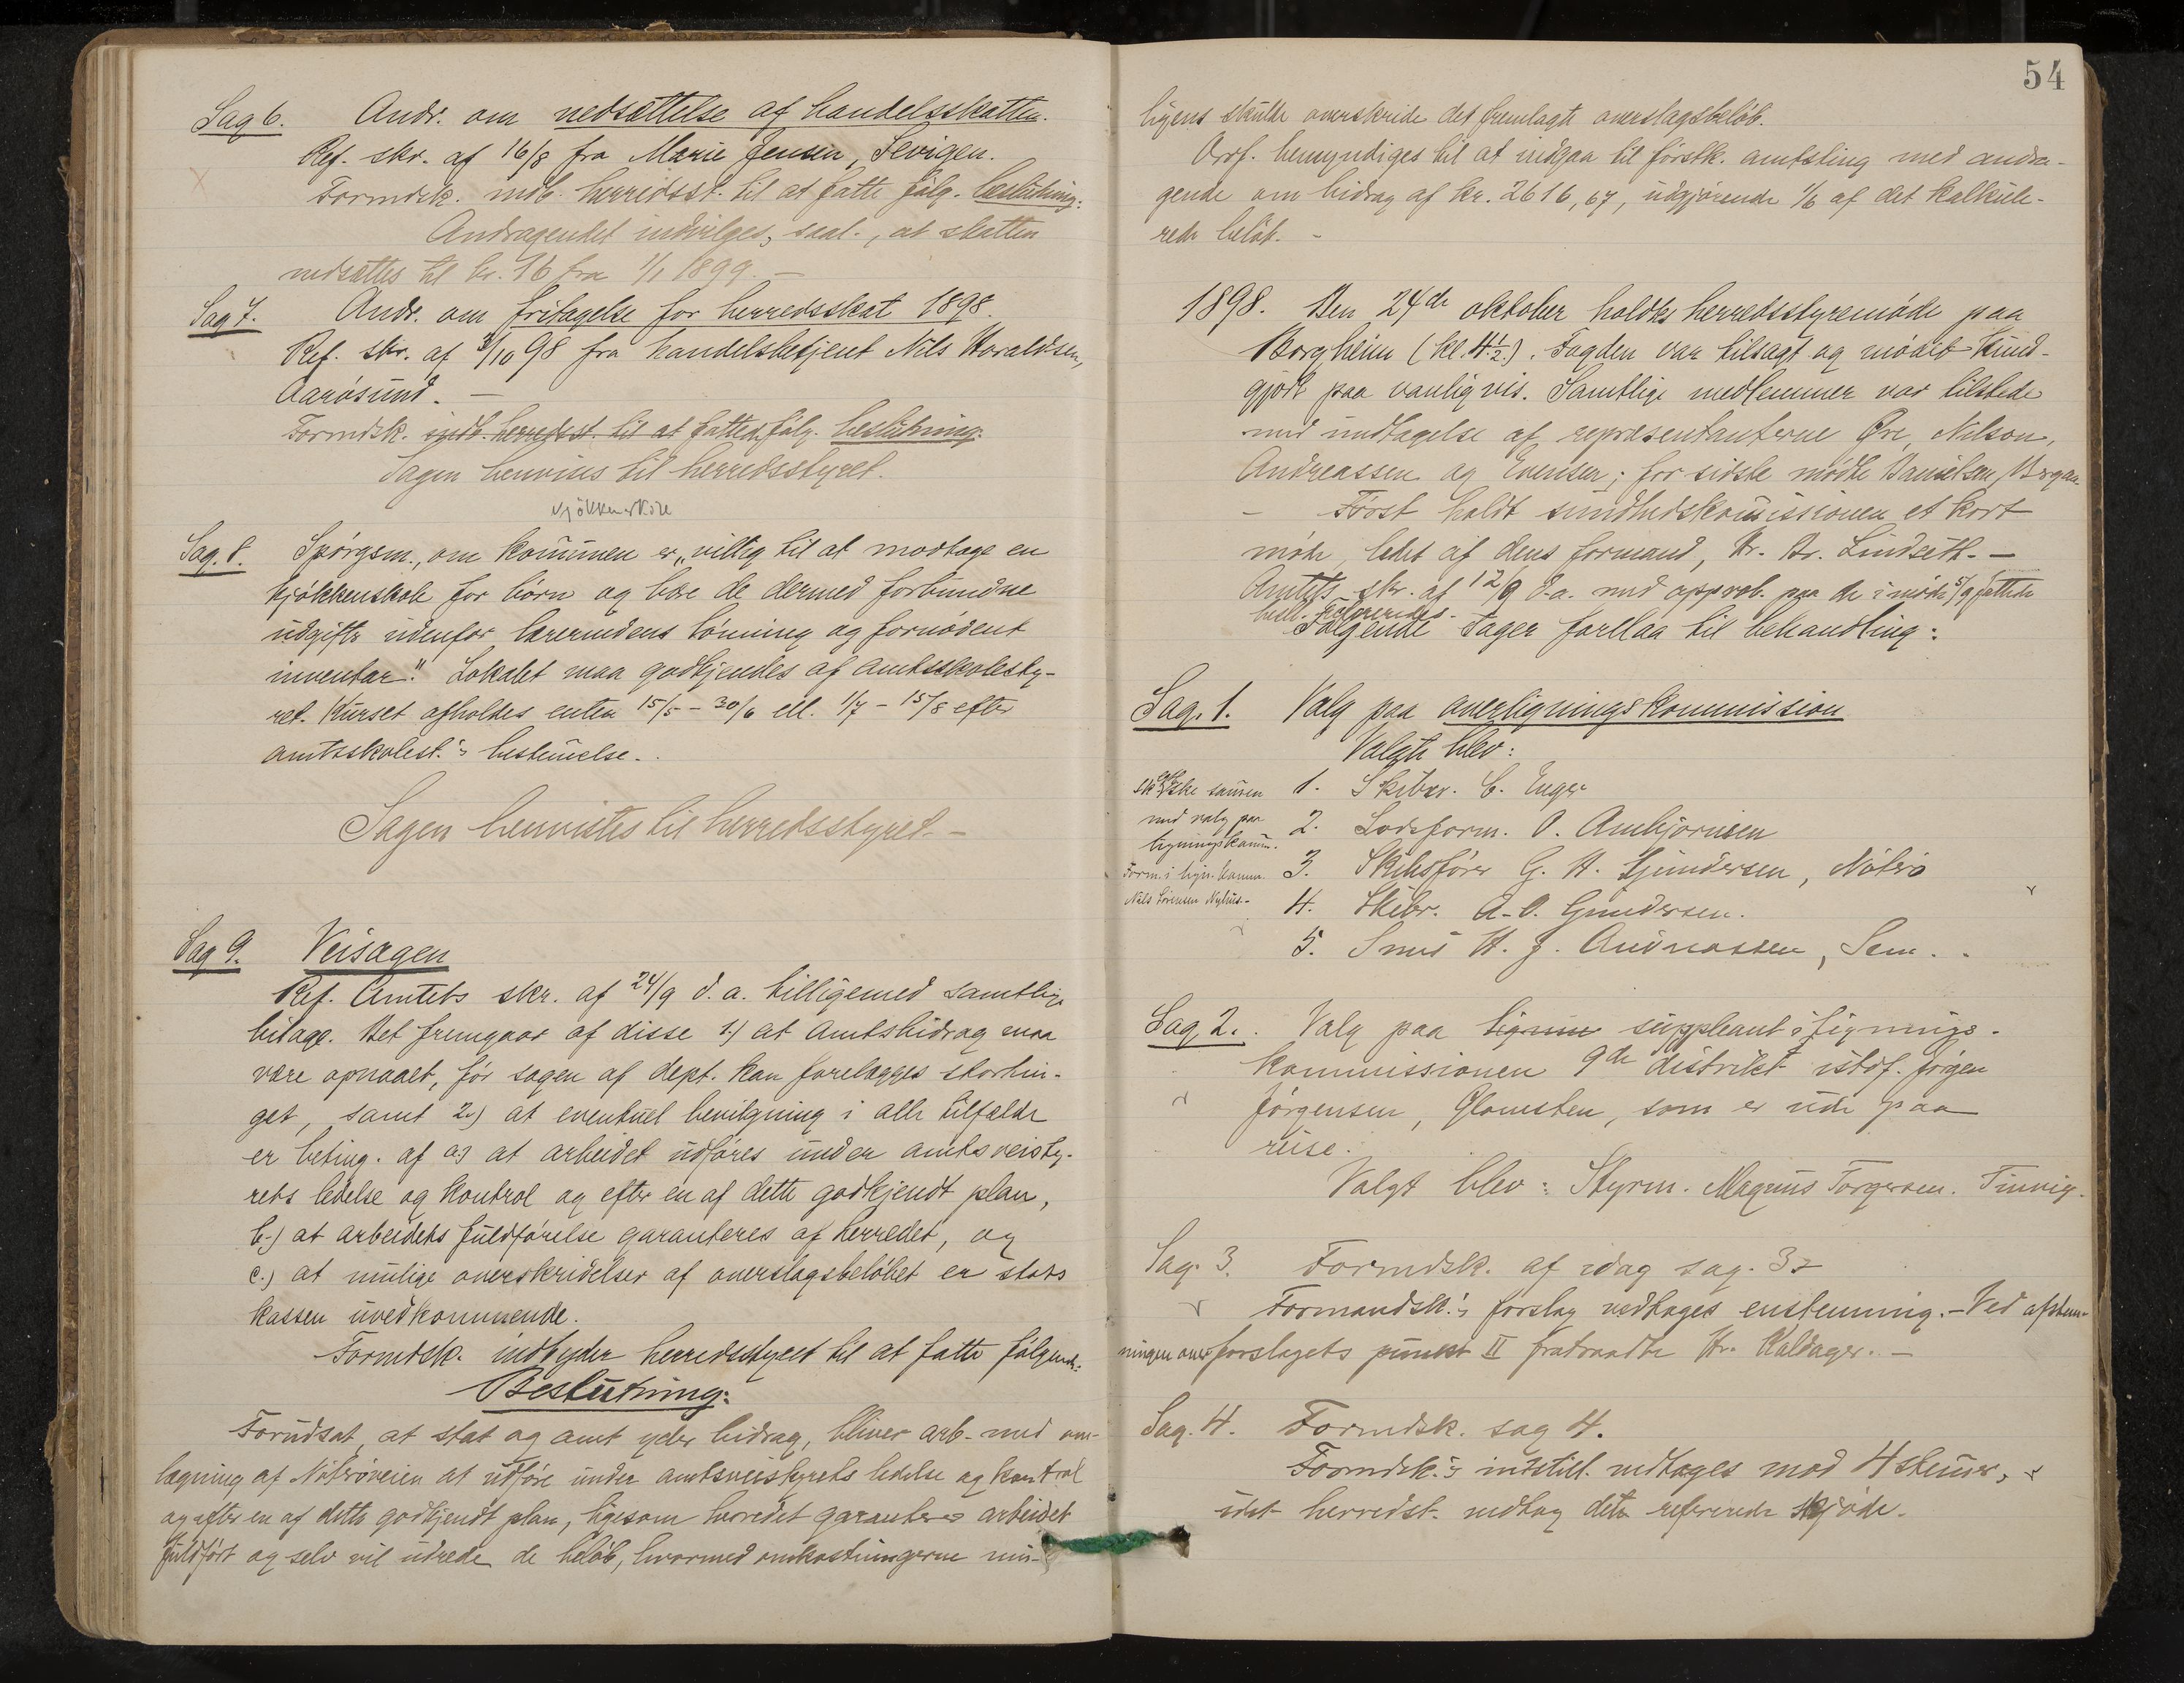 Sag 6. Andr. om nedsættelse af handelsskatten.
Ref. skr. af 16/8 fra Marie Jensen,
Formdsk. indb. herredsst. til at fatte følg. beslutning:
Andragendet indvilges, saal., at skatten
nedsættes til kr. 16 fra 1/1 1899. —
Sag 7. Andr. om fritagelse for herredsskat 1898.
Ref. skr. af 3/10 98 fra handelsbetjent Nils Haraldsen,
Aarøsund. —
Formdsk. indb. herredsst. til at fatte følg. beslutning:
Sagen henvises til herredsstyret.
Kjøkkenskole
Sag. 8. Spørgsm., om kommunen er „villig til at modtage en
kjøkkenskole for børn og bære de dermed forbundne
udgifter udenfor lærerindens lønning og fornødent
inventar." Lokalet maa godkjendes af amtsskolesty-
ret. Kurset afholdes enten 15/5 – 30/6 ell. 1/7 – 15/8 efter
amtsskolest.'s bestemmelse.
Sagen henvistes til herredsstyret. —
Sag 9. Veisagen
Ref. Amtets skr. af 24/9 d.a. tilligemed samtlige
bilage. Det fremgaar af disse 1.) at Amtsbidrag maa
være opnaaet, før sagen af dept. kan forelægges storthin-
get, samt 2.) at eventuel bevilgning i alle tilfælde
er beting. af a.) at arbeidet udføres under amtsveisty-
rets ledelse og kontrol og efter en af dette godkjendt plan,
b.) at arbeidets fuldførelse garanteres af herredet, og
c.) at mulige overskridelser af overslagsbeløbet er stats
kassen uvedkommende.
Formdsk. indbyder herredsstyret til at fatte følgende
Beslutning:
Forudsat, at stat og amt yder bidrag, bliver arb. med om-
lægning af Nøtterøveien at udføre under amtsveistyrets ledelse og kontrol
og efter en af dette godkjendt plan, ligesom herredet garanterer arbeidet
fuldført og selv vil udrede de beløb, hvormed omkostningerne mu-
54
ligens skulde overskride det fremlagte overslagsbeløb.
Ordf. bemyndiges til at indgaa til førstk. amtsting med andra-
gende om bidrag af kr. 2616,67, udgjørende 1/6 af det kalkule-
rede beløb. –
1898. Den 24de oktober holdtes herredsstyremøde paa
Borgheim (kl. 4½). Fogden var tilsagt og mødet kund-
gjort paa vanlig vis. Samtlige medlemmer var tilstede
med undtagelse af repræsentanterne Øre, Nilson,
Andreassen og Evensen; for sidste mødte Danielsen,
– Først holdt sundhedskommissionen et kort
møde, ledet af dens formand, Hr. Dr. Lindseth. —
Amtets skr. af 12/9 d.a. med approb. paa de i møde 5/9 fattede
Følgende sager forelaa til behandling:
Sag. 1. Valg paa overligningskommission
Valgte blev:
1. Skibsr. C. Enger
2. Lodsform. O. Ambjørnsen
3. Skibsfører G. H. Gundersen, Nøterø
4. Skibr. A. O. Gundersen.
5. Smed H. J. Andreassen, Sem.
med valg paa
ligningskomm.
Form. i lign. komm.
Nils Sørensen Nyhus. –
Sag 2. Valg paa suppleant i lignings-
kommissionen 9de distrikt istdf. Jørgen
Jørgensen, Glomsten, som er ude paa
reise.
Valgt blev: Styrm. Magnus Torgersen.
Sag. 3. Formdsk. af idag sag. 3
Formandsk.'s forslag vedtages enstemmig. – Ved afstem-
ningen over forslagets punkt II fratraadte Hr. Kaldager. —
Sag. 4. Formdsk. sag 4.
Formdsk.'s indstill. vedtages mod 4 stemmer,
idet herredst. vedtog det refererede skjøde.